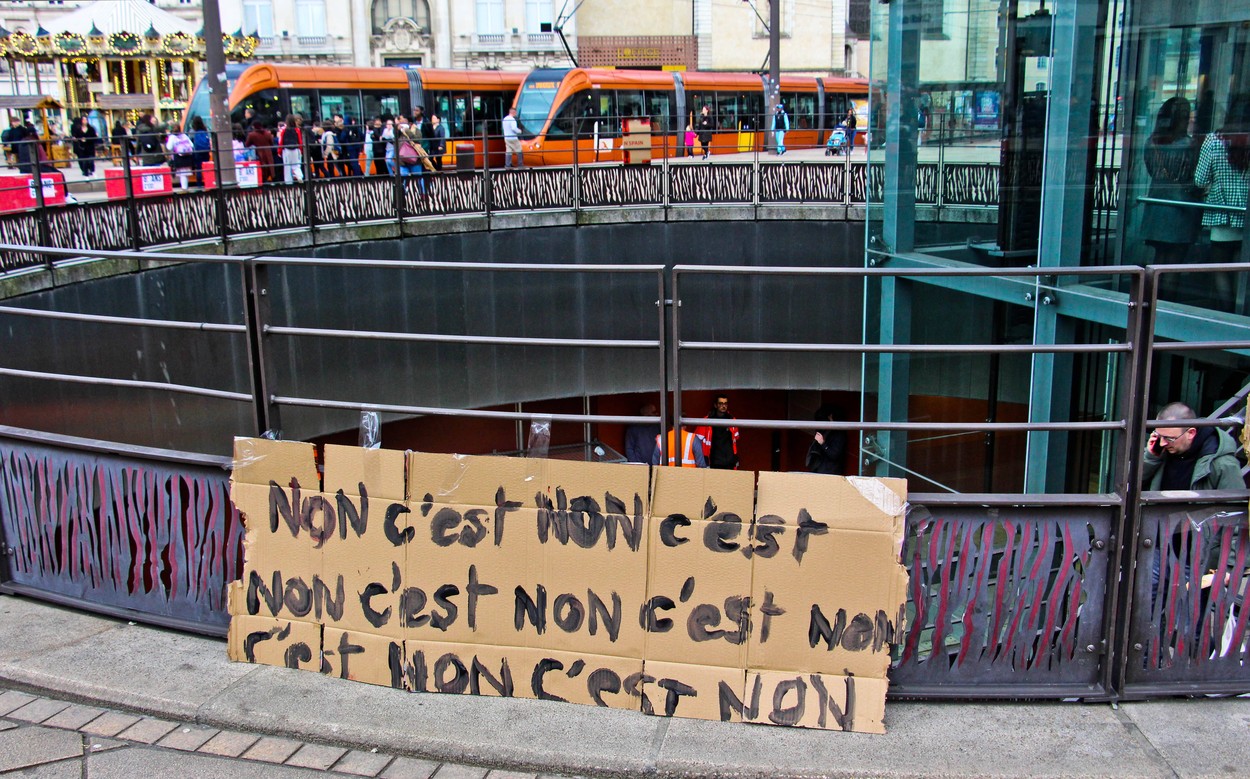 NON c'est NON c'est
NON c'est NON c'est NON
c'est NON C'est NON